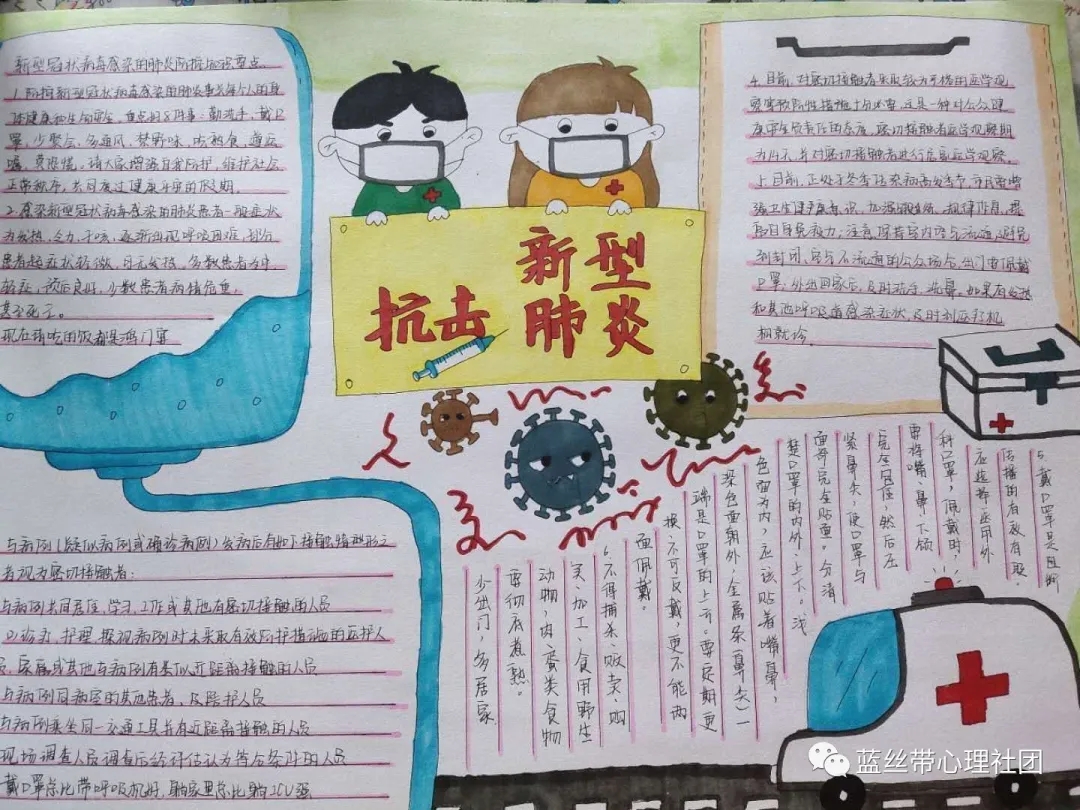 新型冠状病毒感染的肺炎防控知识要点
1.防控新型冠状病毒感染的肺炎事关每个人的身
体健康和生命安全,重点做8件事:勤洗手、戴口
罩、少聚会、多通风、禁野味、肉熟食、遵医
嘱、莫恐慌。请大家增强自我防护,维护社会
正常秩序,共同度过健康平安的假期。
2.感染新型冠状病毒感染的肺炎患者一般症状
为发热、乏力、干咳、逐渐出现呼吸困难,部分
患者起症状轻微,可无发热。多数患者为中
轻症,预后良好,少数患者病情危重,
甚至死亡。
现在请吃的饭都是鸿门宴
抗击
新型
肺炎
4.目前,对密切接触者采取较为严格的医学观
察等预防性措施十分必要,这是一种对公众健
康安全负责任的态度。密切接触者医学观察期
为14天,并对密切接触者进行居家医学观察。
目前,正处于冬季传染病高发季节,市民要增
强卫生健康意识,加强锻炼、规律作息,提
高自身免疫力;注意保持室内空气流通,避免
到封闭、空气不流通的公众场合,出门要佩戴
口罩,外出回家后,及时洗手、洗鼻。如果有发热
和其他呼吸道感染症状,及时到医疗机
构就诊。
与病例(疑似病例或确诊病例)发病后有如下接触情形之
者视为密切接触者:
与病例共同居住、学习、工作或其他有密切接触的人员
诊治、护理、探视病例时未采取有效防护措施的医护人
员、家属或其他与病例有类似近距离接触的人员
与病例同病室的其他患者,及陪护人员
与病例乘坐同一交通工具并有近距离接触的人员
现场调查人员调查后经评估认为符合条件的人员
戴口罩总比带呼吸机好,躺家里总比躺ICU强
5.戴口罩是阻断
传播的有效有段。
应选择医用外
科口罩,佩戴时,
要将嘴、鼻、下颌
完全包住,然后压
紧鼻夹,使口罩与
面部完全贴面,分清
楚口罩的内外、上下。浅
色面为内,应该贴着嘴鼻,
深色面朝外,金属条(鼻夹)一
端是口罩的上方。要定期更
换、不可反戴,更不能两
面佩戴。
6.不得捕杀、贩卖、购
买、加工、食用野生
动物,肉、蛋类食物
要彻底煮熟。
少出门,多居家
蓝丝带心理社团